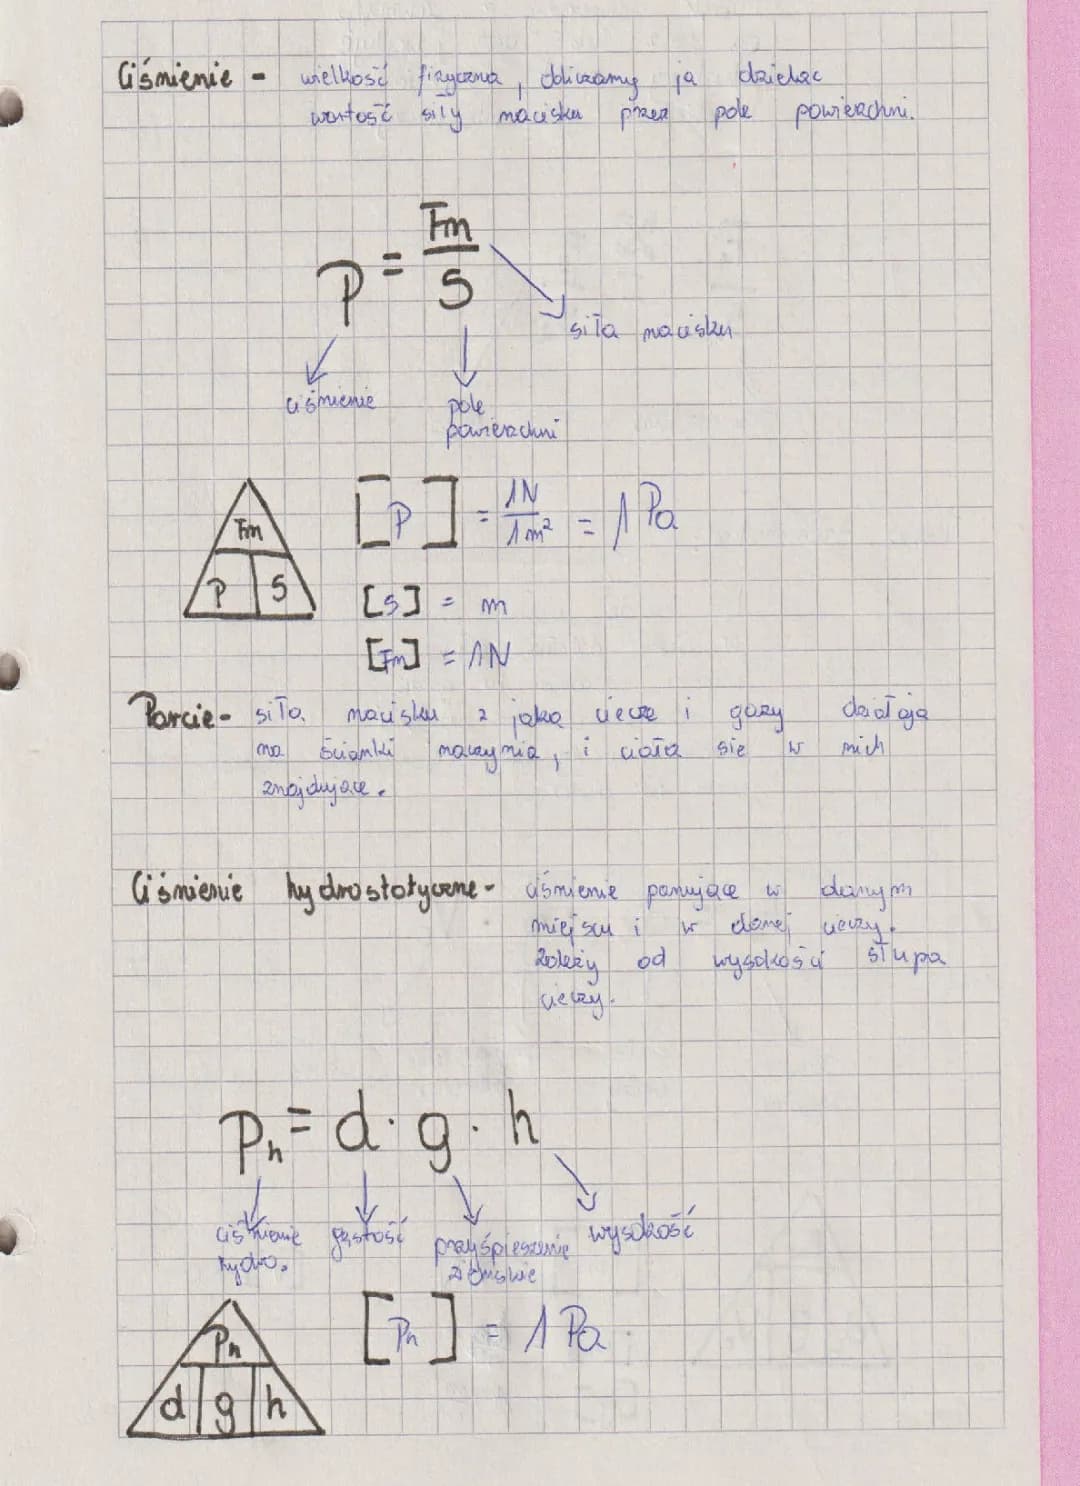 Ciśnienie - wielkość fizyczna, obliczamy ją dzieląc
wartość siły nacisku przez pole powierzchni.
p = Fn/S
siła nacisku
ciśnienie
pole
powierzchni
Fn
p S
[p] = 1N/1m² = 1 Pa
[S] = m
[Fn] = 1N
Parcie - siła nacisku z jaką ciecze i gazy działają
na ścianki naczynia, i ciała się w nich
znajdujące.
Ciśnienie hydrostatyczne - ciśnienie panujące w danym
miejscu i w danej cieczy.
Zależy od wysokości słupa
cieczy.
Ph = d · g · h
ciśnienie
hydro.
gęstość
przyśpieszenie
ziemskie
wysokość
Ph
d g h
[Ph] = 1 Pa